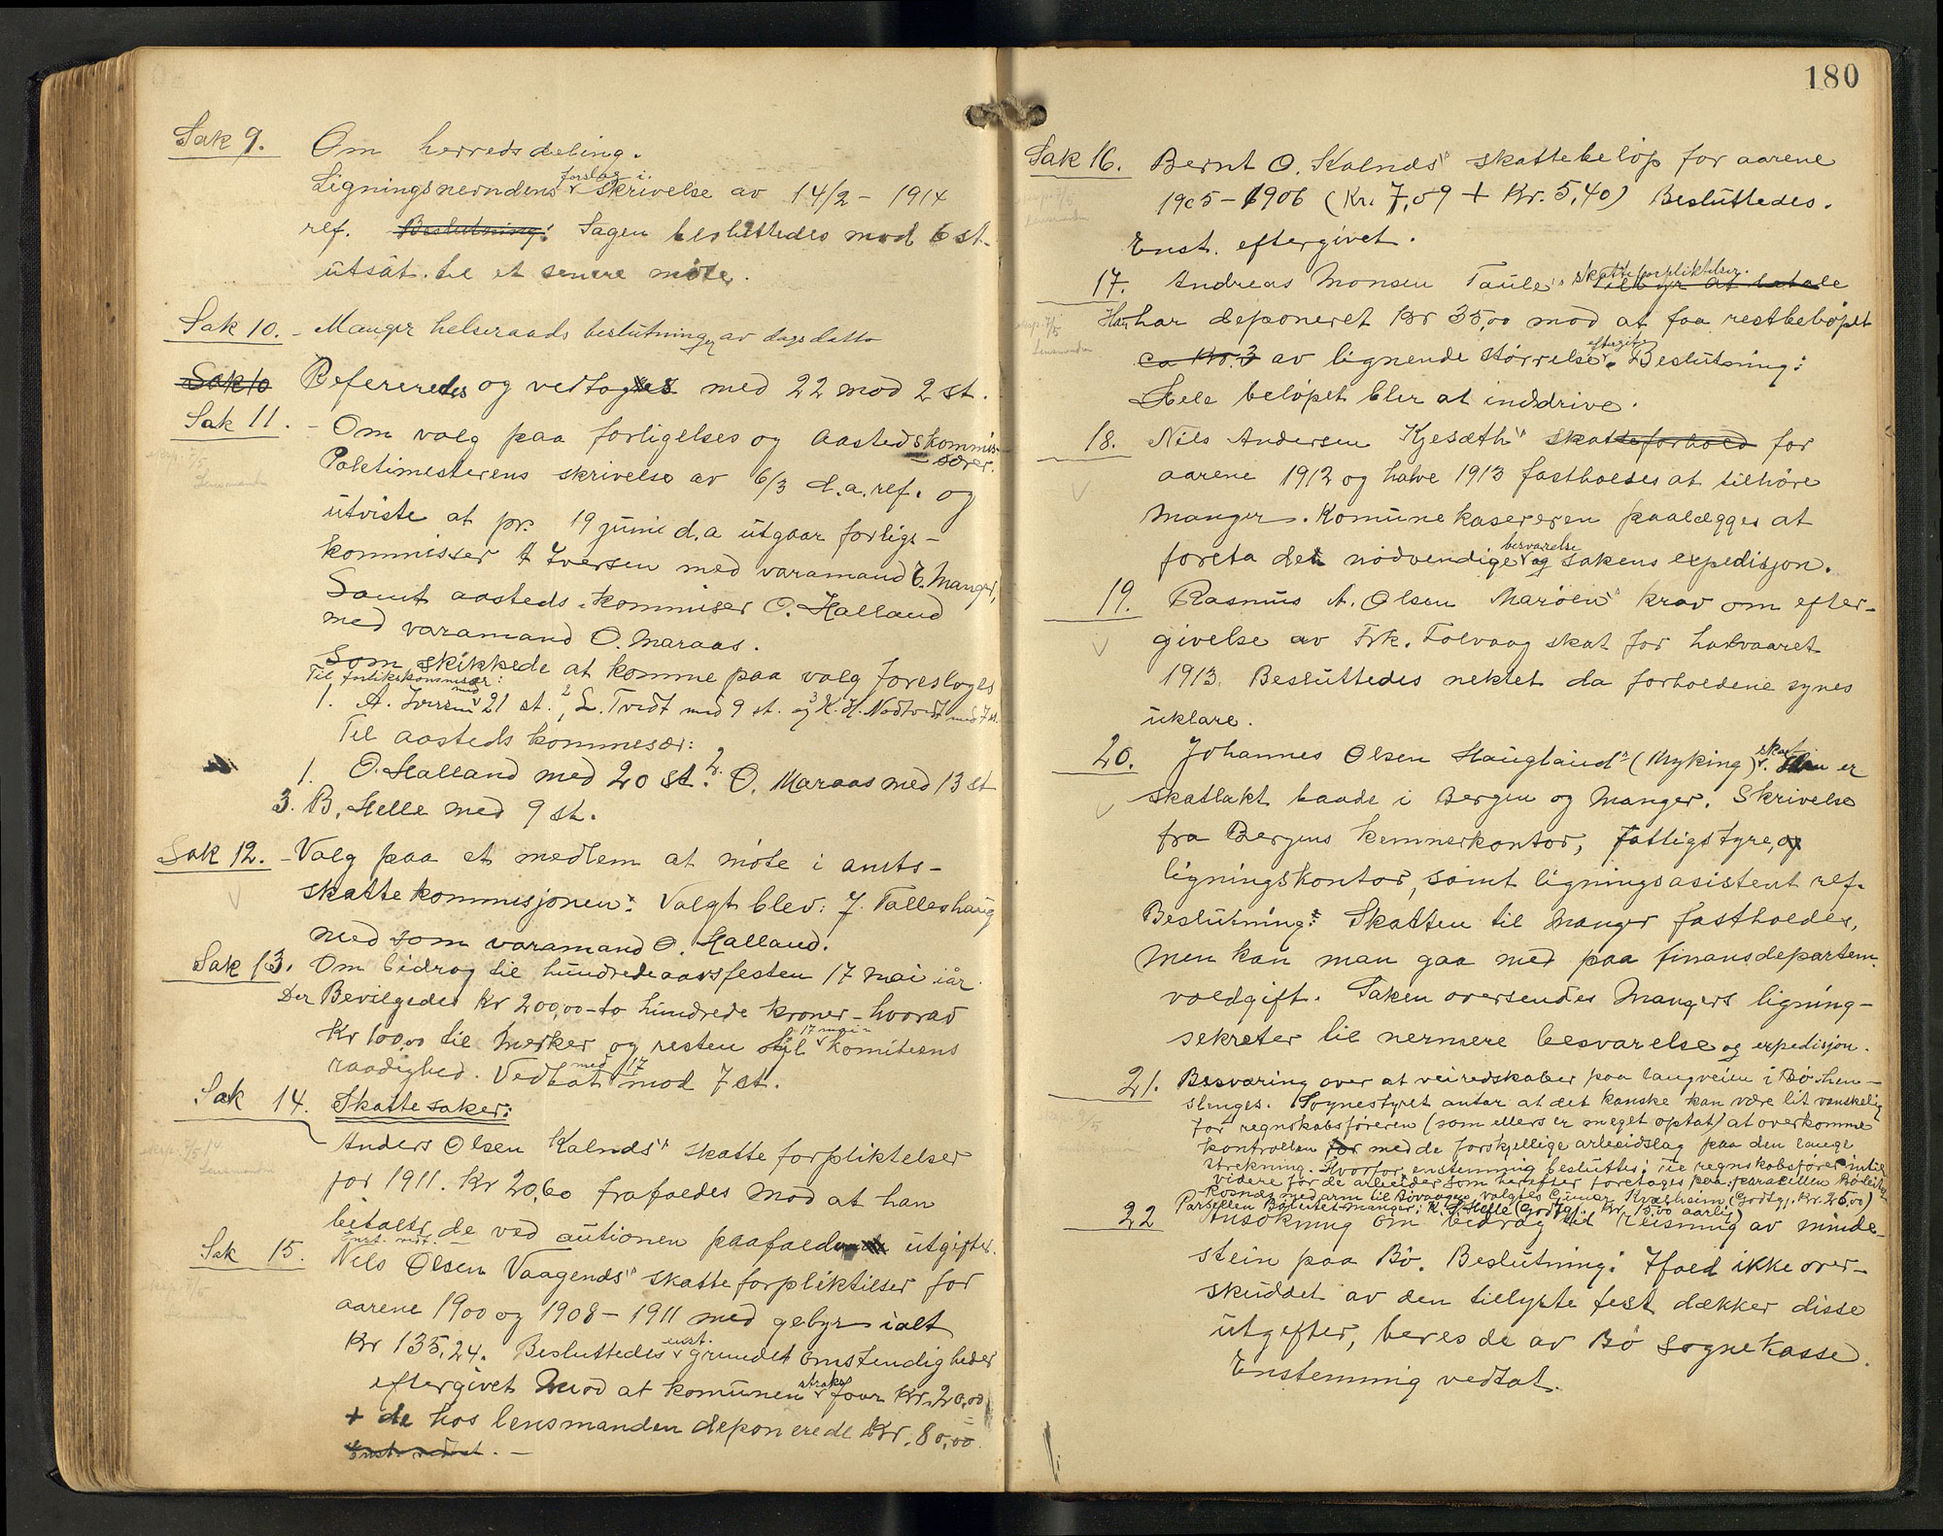 Sak 9. Om herredsdeling.
Ligningsnevndens forslag i skrivelse av 14/2 - 1914
ref. Beslutning: Sagen besluttedes mod 6 st.
utsat til et senere møte.
Sak 10. - Manger helseraads beslutninger av dags datto
Sak 10 Refereredes og vedtoges med 22 mod 2 st.
Sak 11. - Om valg paa forligelses og aastedskommis-
- særer.
Politimesterens skrivelse av 6/3 d.a. ref. og
utviste at pr. 19 juni d.a utgaar forligs-
kommisser A Iversen med varamand E. Manger,
Samt aasteds kommiser O. Halland
med varamand O. Maraas.
Som skikkede at komme paa valg foresloges
Til forlikskommisær:
1. A. Iversen med 21 st. 2 L. Tvedt med 9 st. og 3 K. H. Nodtvedt med 7 st.
Til aasteds kommesær:
1. O. Halland med 20 st. 2. O. Maraas med 13 st
3. B. Helle med 9 st.
Sak 12. - Valg paa et medlem at møte i amts-
skattekommisjonen: Valgt blev: J. Talleshaug
med som varamand O. Halland.
Sak 13. Om bidrag til hundredeaarsfesten 17 mai iår.
Der Bevilgedes Kr 200,00 - to hundrede kroner - hvorav
Kr 100,00 til merker og resten til 17 mai - komiteens
raadighed. Vedtat med 17 mod 7 st.
Sak 14. Skattesaker:
Anders Olsen Kalnæs" skatteforpliktelser
for 1911. Kr 20,60 frafaldes mod at han
betaler de ved autionen paafaldende utgifter.
Enst. vedt.
Sak 15. Nils Olsen Vaagenæs" skatteforpliktilser for
aarene 1900 og 1908 - 1911 med gebyr ialt
Kr 135,24. Besluttedes enst. grundet omstendigheder
eftergivet mod at komunen straks faar Kr. 20,00
+ de hos lensmanden deponerede Kr. 80,00
Enst. vedtat. -
180
Sak 16. Bernt O. Kalnæs" skattebeløp for aarene
1905 - 1906 (Kr. 7,59 + Kr. 5,40) Besluttedes.
Enst. eftergivet.
17. Andreas Monsen Taule" skatteforpliktelser. tilbyr at betale
Han har deponeret Kr 35,00 mod at faa restbeløpet
ca Kr. 3 av lignende størrelse eftergit. Beslutning:
Hele beløpet blir at inddrive.
18. Nils Andersen Kjesæth" skatteforhold for
aarene 1912 og halve 1913 fastholdes at tilhøre
Manger. Komunekasereren paalægges at
foreta den nødvendige besvarelse og sakens expedisjon.
19. Rasmus A. Olsen Marøens" krav om efter-
givelse av Frk. Tolvaag skat for halvaaret
1913. Besluttedes nektet da forholdene synes
uklare.
20. Johannes Olsen Hauglands" (Myking) skat. er
skatlakt baade i Bergen og Manger. Skrivelse
fra Bergens kemnerkontor, fattigstyre, og
ligningskontor, samt ligningsasistent ref.
Beslutning: Skatten til Manger fastholdes,
men kan man gaa med paa finansdepartem.
voldgift. Saken oversendes Mangers ligning-
sekretær til nermere besvarelse og expedisjon.
21. Besværing over at veiredskaber paa langveien i Bø hen-
slenges. Sognestyret antar at det kanske kan være lit vanskelig
for regnskabsføreren (som ellers er meget optat) at overkomme
kontrollen for med de forskjellige arbeidslag paa den lange
strekning. Hvorfor enstemmig besluttes: Til regnskabsfører indtil
videre for de arbeider som herefter foretages paa: parcellen Bøleitet-
Rosnæs med arm til Tovaagen valgtes Gunar Kvalheim (Godtgj. Kr. 25,00)
Parsellen Bøleitet-Manger: K. S. Helle (Godtgj. Kr. 15,00 aarlig)
22 Ansøkning om bidrag til reisning av minde-
stein paa Bø. Beslutning: Ifald ikke over-
skuddet av den tillyste fest dækker disse
utgifter, beres de av Bø sognekasse.
Enstemmig vedtat.